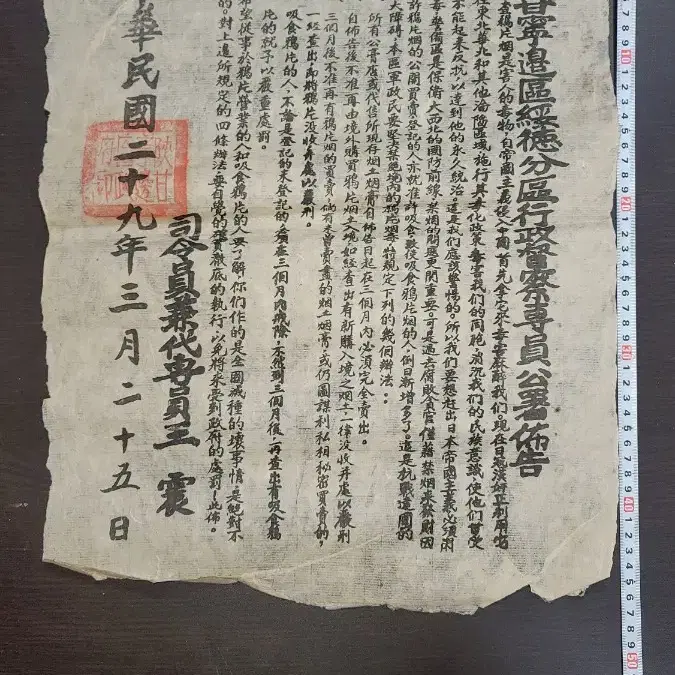 甘寧邊區綏德分區行政督察專員公署佈告
查鴉片烟是害人的毒物自帝國主義侵入中國首先拿它來毒害麻醉我們。現在日寇漢奸正利用出
在東北華北和其他淪陷區域施行其毒化政策毒害我們的同胞消沉我們的民族意識使他們甘受
不能起來反抗以達到他的永久統治這是我們應該警惕的。所以我們要想趕出日本帝國主義必須肅
毒警備區是保衛大西北的國防前線禁烟的關係更關重要。可是過去腐敗貪官僅藉禁烟來發財因
許鴉片烟的公開買賣登記的人亦就准許吸食致使吸食鴉片烟的人倒日漸增多了。這是抗戰建國的
大障碍本區軍政民要堅決禁絕境內的鴉片烟毒特規定下列的幾個辦法：
所有公膏店或代售所現存烟土烟膏自佈告日起在三個月內必須完全賣出。
自佈告後不准再由境外購買鴉片烟土入境如經查出有新購入境之烟土一律沒收并處以嚴刑
三個月後不准再有鴉片烟的買賣倘有未曾賣盡的烟土烟膏或仍圖謀利私相秘密買賣的，
一經查出即將鴉片沒收并處以嚴刑。
吸食鴉片的人不論是登記的未登記的必須在三個月內戒除，未然到三個月後，再查出有吸食鴉
片的就予以嚴重處罰。
希望從事於鴉片營業的人和吸食鴉片的人要了解你們作的是全國滅種的壞事情是絕對不
的。對上邊所規定的四條辦法要自覺的確實徹底的執行以免將來受到政府的處罰！此佈。
司令員兼代專員王 震
華民國二十九年三月二十五日